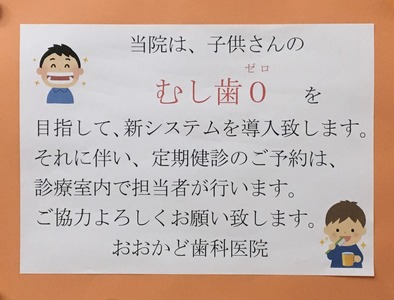 当院は、子供さんの
ゼロ
むし歯0 を
目指して、新システムを導入致します。
それに伴い、定期健診のご予約は、
診療室内で担当者が行います。
ご協力よろしくお願い致します。
おおかど歯科医院